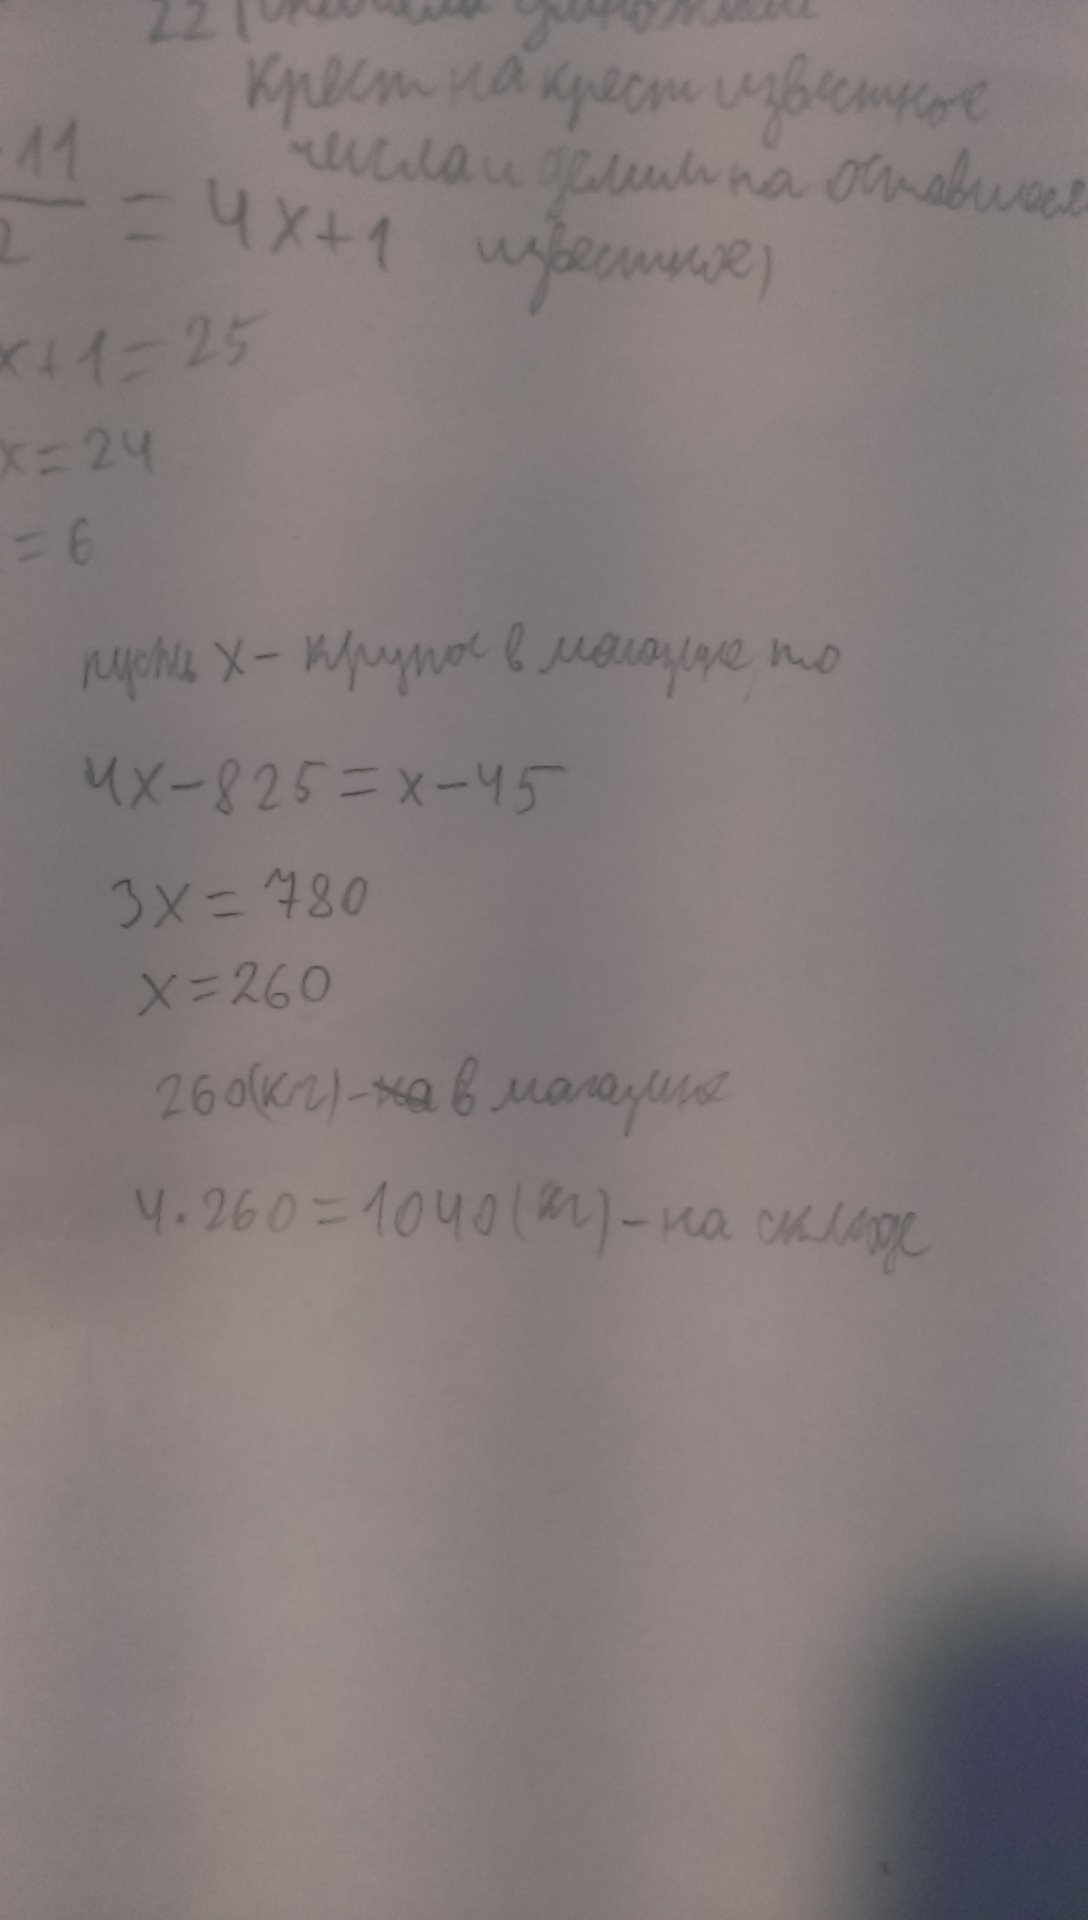 22 (сначала умножаем
крест на крест известные
числа и делим на оставшееся
известное)
11
2
= 4x+1
x+1=25
x=24
=6
пусть x- крупа в магазине, то
4x-825=x-45
3x=780
x=260
260(кг)-на в магазине
4·260=1040(кг)-на складе